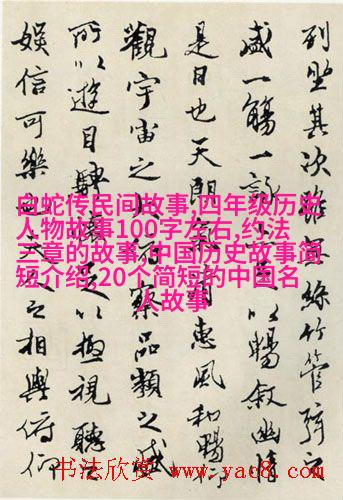 列坐其次雖無絲竹管弦之
盛一觴一詠亦足以暢敘幽情
是日也天朗氣清惠風和暢仰
觀宇宙之大俯察品類之盛
所以遊目騁懷足以極視聽之
娛信可樂也夫人之相與俯仰
白蛇传民间故事,四年级历史
人物故事100字左右,约法
三章的故事,中国历史故事简
短介绍,20个简短的中国名
人故事
书法欣赏 www.yac8.com